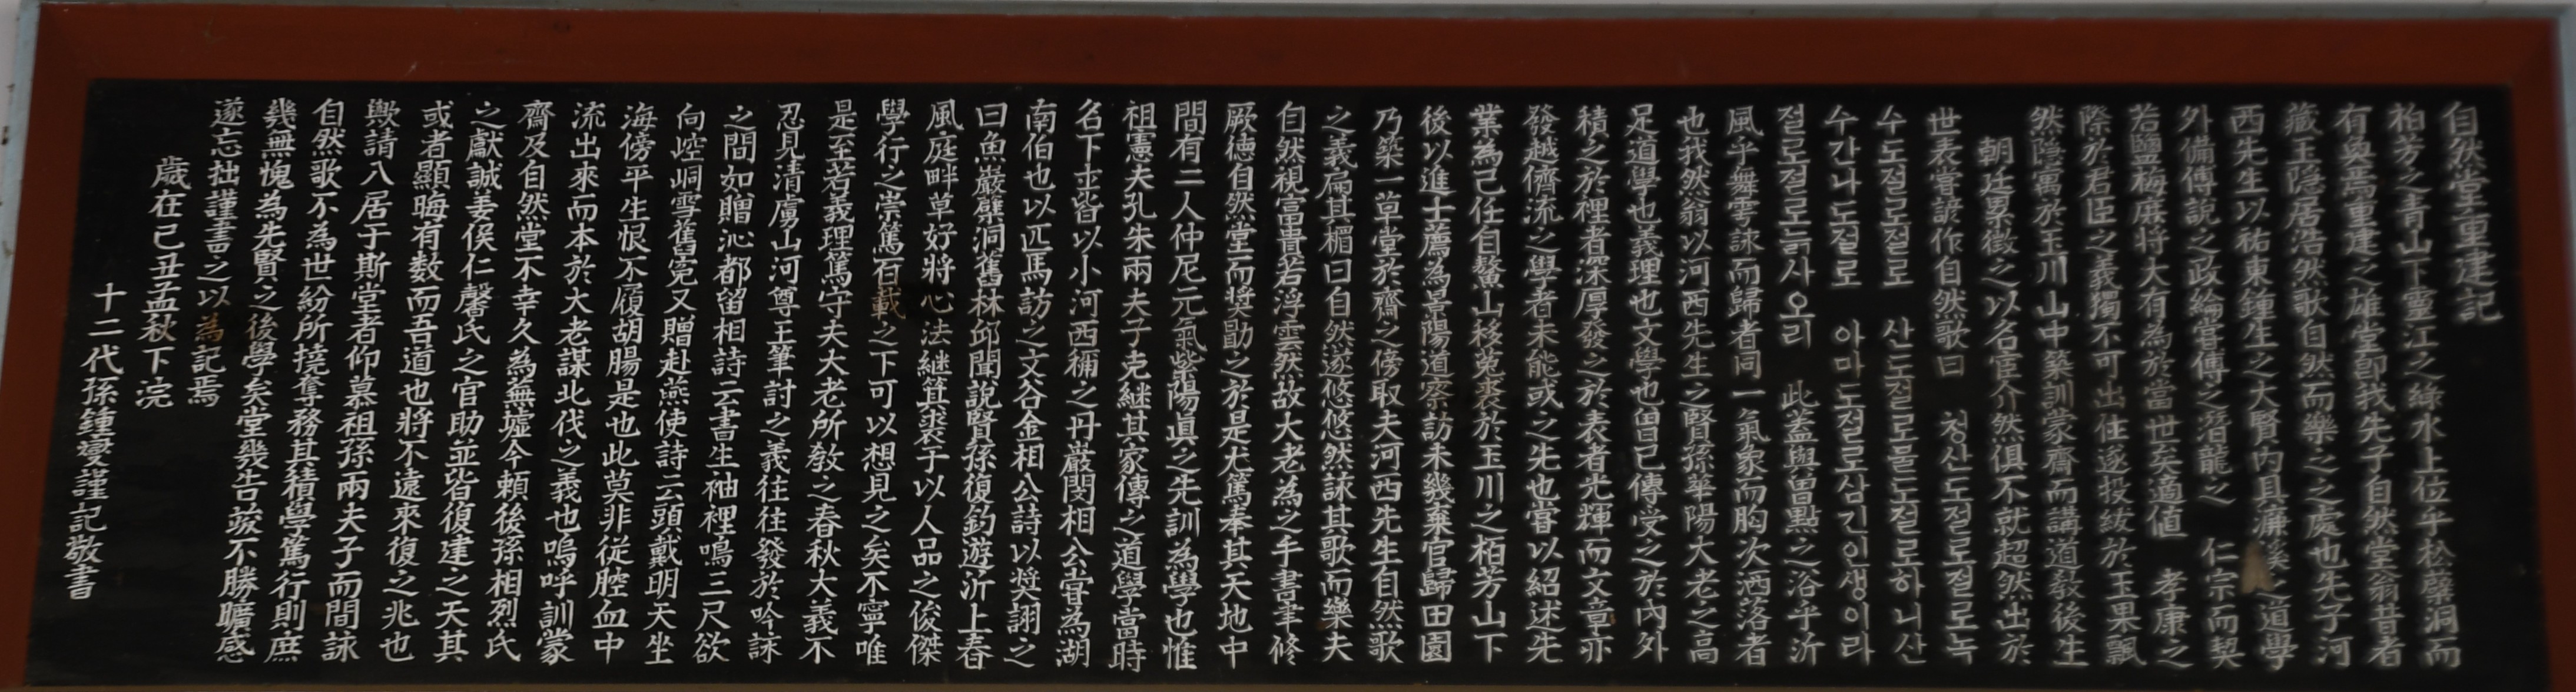 自然堂重建記
柏芳之青山下靈江之綠水上位乎松檗洞而
有奐焉重建之雄堂即我先子自然堂翁昔者
藏玉隱居浩然歌自然而樂之之處也先子河
西先生以祐東鍾生之大賢內具濂溪之道學
外備傅說之政綸當傅之潛龍之 仁宗而契
若鹽梅庶將大有為於當世矣適値 孝康之
際於君臣之義獨不可出仕遂投紱於玉果飄
然隱寓於玉川山中築訓蒙齋而講道敎後生
朝廷累徵之以名宦介然俱不就超然出於
世表嘗諺作自然歌曰 청산도절로절로녹
수도절로절로 산도절로물도절로하니산
수간나도절로 아마도절로삼긴인생이라
절로절로늙사오리 此蓋與曾點之浴乎沂
風乎舞雩詠而歸者同一氣象而胸次洒落者
也我然翁以河西先生之賢孫華陽大老之高
足道學也義理也文學也曽已傳受之於內外
積之於裡者深厚發之於表者光輝而文章亦
發越儕流之學者未能或之先也嘗以紹述先
業為己任自鰲山移菟裘於玉川之柏芳山下
後以進士薦為景陽道察訪未幾棄官歸田園
乃築一草堂於齋之傍取夫河西先生自然歌
之義扁其楣曰自然遂悠悠然詠其歌而樂夫
自然視富貴若浮雲然故大老為之手書聿修
厥徳自然堂而奬勛之於是尤篤奉其天地中
間有二人仲尼元氣紫陽眞之先訓為學也惟
祖憲夫孔朱兩夫子克継其家傳之道學當時
名下士皆以小河西稱之丹巖閔相公甞為湖
南伯也以匹馬訪之文谷金相公詩以奬詡之
曰魚巖檗洞舊林邱聞說賢孫復釣遊沂上春
風庭畔草好將心法継箕裘于以人品之俊傑
學行之崇篤百載之下可以想見之矣不寧唯
是至若義理篤守夫大老所敎之春秋大義不
忍見清虜山河尊王筆討之義往往發於吟詠
之間如贈沁都留相詩云書生袖裡鳴三尺欲
向崆峒雪舊寃又贈赴燕使詩云頭戴明天坐
海傍平生恨不履胡腸是也此莫非従腔血中
流出來而本於大老謀北伐之義也嗚呼訓蒙
齋及自然堂不幸久為蕪墟今頼後孫相烈氏
之獻誠姜侯仁馨氏之官助並皆復建之天其
或者顯晦有數而吾道也將不遠來復之兆也
歟請八居于斯堂者仰慕祖孫兩夫子而間詠
自然歌不為世紛所撓奪務其積學篤行則庶
幾無愧為先賢之後學矣堂幾告竣不勝曠感
遂忘拙謹書之以為記焉
歲在己丑孟秋下浣
十二代孫鍾燮謹記敬書